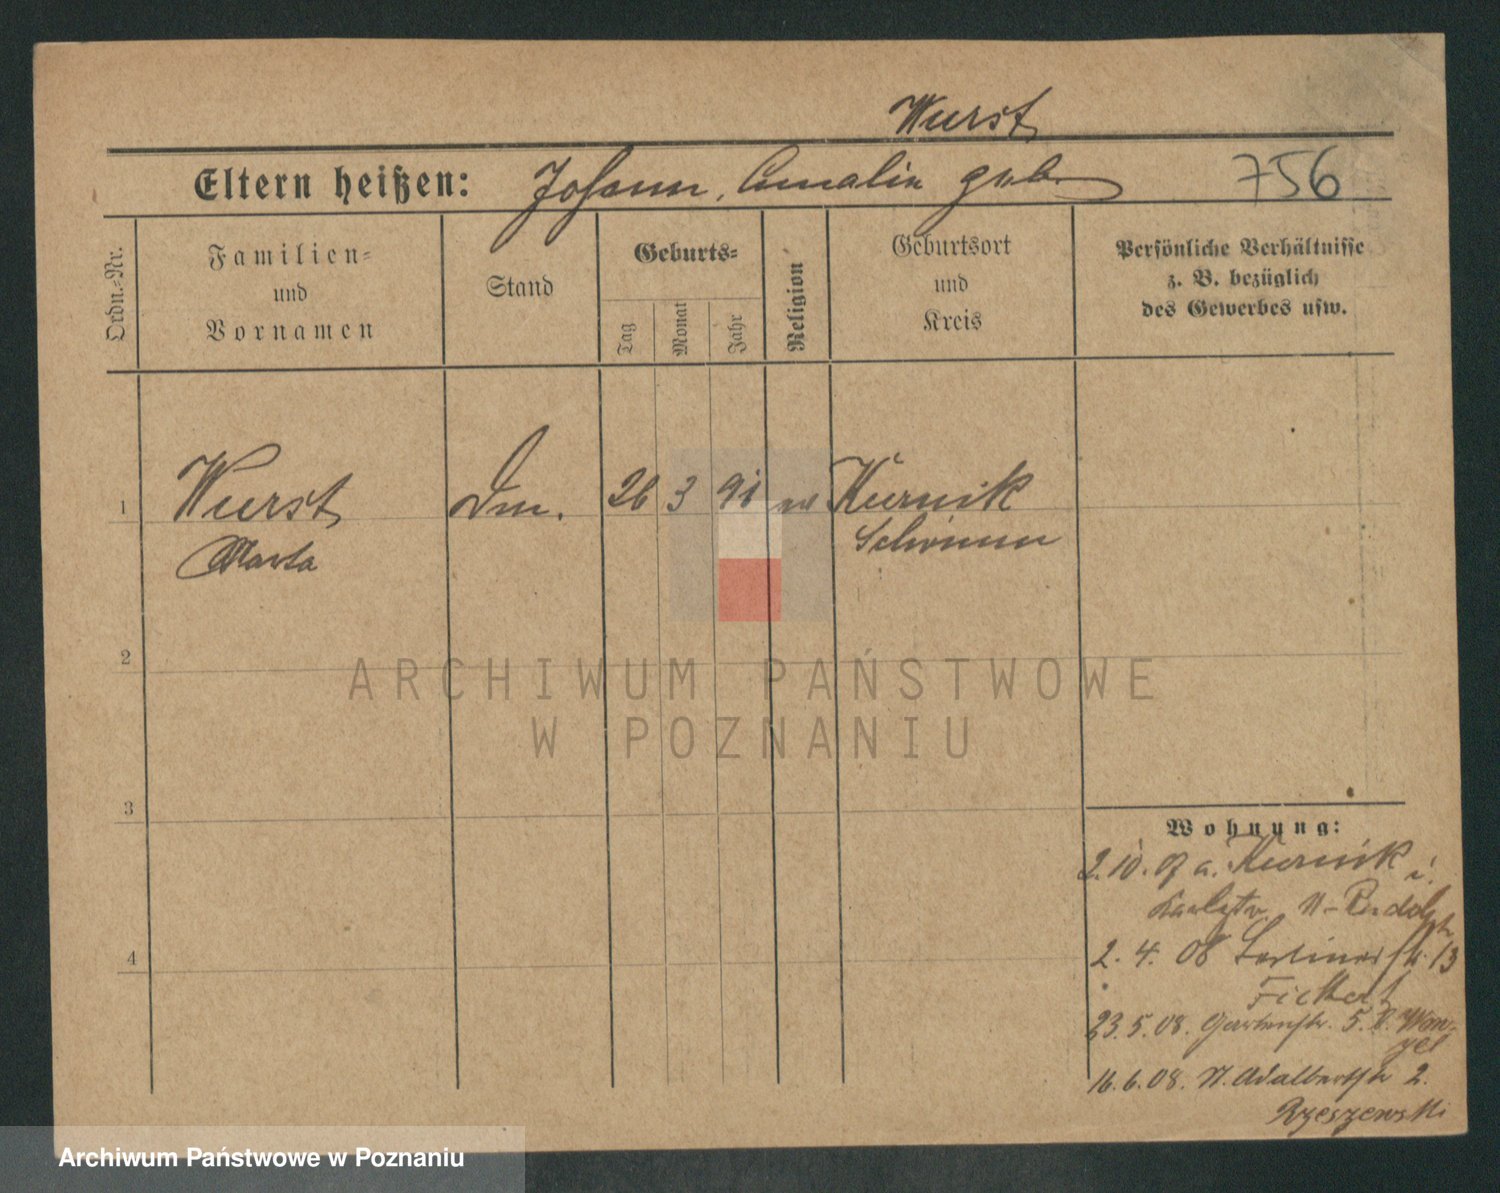 Wurst
Eltern heißen: Johann, Amalie geb.
756
Ordn.-Nr.
Familien-
und
Vornamen
Stand
Geburts-
Tag
Monat
Jahr
Religion
Geburtsort
und
Kreis
Persönliche Verhältnisse
z. B. bezüglich
des Gewerbes usw.
1
Wurst
Marta
26 3 91
Kurnik
Schrimm
2
ARCHIWUM PAŃSTWOWE
W POZNANIU
3
4
Wohnung:
2.10.07 a. Kurnik i.
2. 4. 08 Berlinerstr. 13
23.5.08. Gartenstr. 5.
16.6.08. Adalbertstr 2.
Rzeszewski
Archiwum Państwowe w Poznaniu